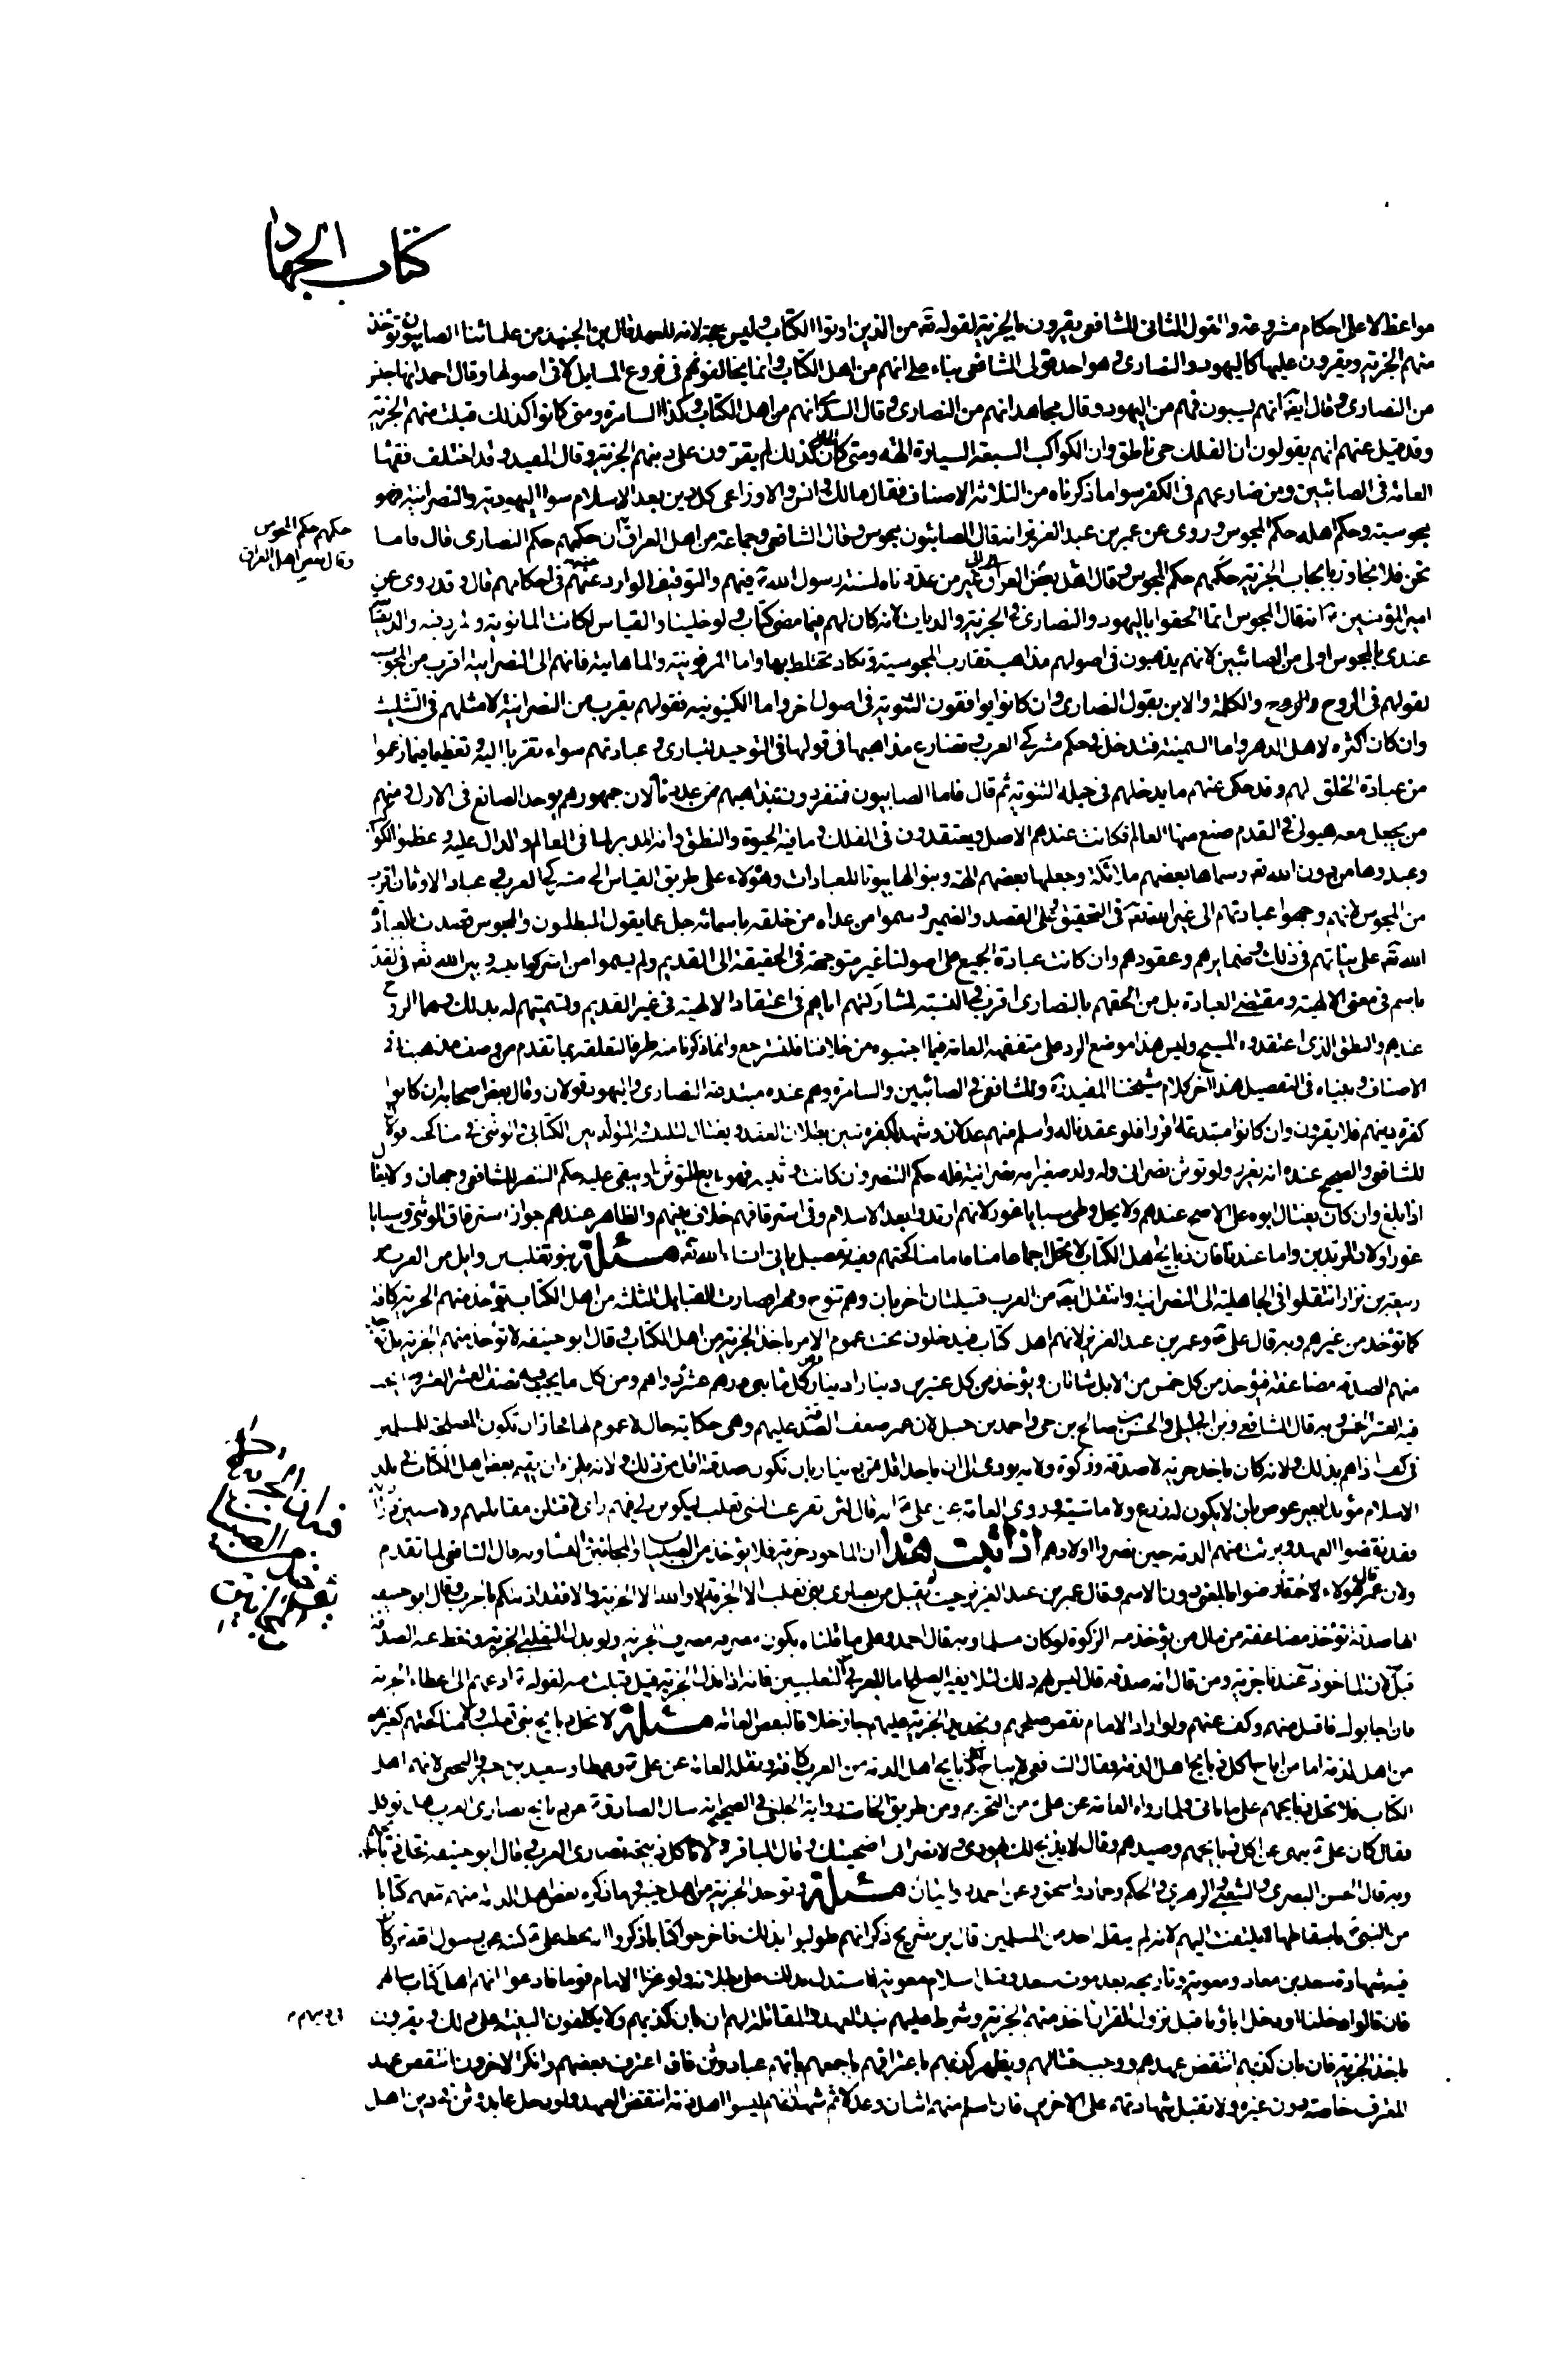 كتاب الجهاد
مواعظ لا على احكام مشروعة والقول الثانى للشافعى يقرون بالجزية لقوله تعه من الذين اوتوا الكتاب وليس بحجة لانه للعهد قال بن الجنيد من علمائنا الصابيون توخذ
منهم الجزية ويقرون عليها كاليهود والنصارى وهو احد قولى الشافعى بناء على انهم من اهل الكتاب وانما يخالفونهم فى فروع المسايل لا فى اصولها وقال احمد انها جنس
من النصارى وقال ايضا انهم يسبتون فهم من اليهود وقال مجاهد انهم من النصارى وقال السدى انهم من اهل الكتاب وكذا السامرة ومتى كانوا كذلك قبلت منهم الجزية
وقد قيل عنهم انهم يقولون ان الفلك حى ناطق وان الكواكب السبعة السيارة الهة ومتى كان كذلك لم يقرون على دينهم الجزية وقال المفيد وقد اختلف فقها
العامة فى الصابئين ومن ضارعهم فى الكفر سوا ما ذكرناه من الثلاثة الاصناف فقال مالك وانس والاوزاعى كل دين بعد الاسلام سوا اليهودية والنصرانية فهو
مجوسية وحكم اهله حكم المجوس وروى عن عمر بن عبد العزيز انه قال الصابئون مجوس وقال الشافعى وجماعة من اهل العراق ان حكمهم حكم النصارى قال فاما
حكمهم حكم المجوس
وقال بعض اهل العراق
نحن فلا نجاوز بايجاب الجزية حكمهم حكم المجوس وقال اهل بعض العراق غير من عددناه لسنة رسول الله فيهم والتوقيف الوارد عنهم فى احكامهم قال وقد روى عن
امير المؤمنين انه قال المجوس انما الحقوا باليهود والنصارى فى الجزية والديات لانه كان لهم فيما مضى كتاب ولو خلينا والقياس لكانت المانوية والمزدقية والديصانية
عندى بالمجوس اولى من الصابئين لانهم يذهبون فى اصولهم مذاهب تقارب المجوسية وتكاد تختلط بها واما المرقونية والماهانية فانهم الى النصرانية اقرب من المجوس
لقولهم فى الروح والكلمة والابن بقول النصارى وان كانوا يوافقون الثنوية فى اصول اخر واما الكينونيه فقولهم يقرب من النصرانية لاصلهم فى التثليث
وان كان اكثره لاهل الدهر واما السمنية فتدخل فى حكم مشركى العرب وتضارع مذاهبها فى قولها فى التوحيد للبارى وعبادتهم سواه تقربا اليه وتعظيما فيما زعموا
من عبادة الخلق لهم وقد حكى عنهم ما يدخلهم فى جملة الثنوية ثم قال فاما الصابيون فمنفردون بمذاهبهم ممن عددناه لان جمهورهم يوحد الصانع فى الازل ومنهم
من يجعل معه هيولى فى القدم صنع منها العالم فكانت عندهم الاصل ويعتقدون فى الفلك وما فيه الحيوة والنطق وانه المدبر لما فى العالم والدال عليه وعظموا الكواكب
وعبدوها من دون الله تعه وسماها بعضهم ملائكة وجعلها بعضهم الهة وبنوا لها بيوتا للعبادات وهؤلاء على طريق القياس الى مشركى العرب وعباد الاوثان اقرب
من المجوس لانهم وجهوا عبادتهم الى غير الله تعه فى التحقيق وعلى القصد والضمير وسموا من عداه من خلقه باسمائه جل عما يقول المبطلون والمجوس قصدت بالعبادة
الله تعه على نياتهم فى ذلك وضمايرهم وعقودهم وان كانت عبادة الجميع على اصولنا غير متوجهة فى الحقيقة الى القديم ولم يسموا من اشركوا بينه وبين الله تعه فى القدم
باسم فى معنى الالهية ومقتضى العبادة بل من الحقهم بالنصارى اقرب فى النسبة لمشاركتهم اياهم فى اعتقاد الالهية فى غير القديم ولتسميتهم له بذلك وهما الروح
عندهم والنطق الذى اعتقدوه المسيح وليس هذا موضع الرد على متفقهة العامة فيما اجتبوه من خلافنا فلنشرحه وانما ذكرنا منه طرفا لتعلقه بما تقدم من وصف مذهبنا فى
الاصناف وبيناه فى التفصيل هذا اخر كلام شيخنا المفيد ره وللشافعى فى الصائبين والسامرة وهم عنده مبتدعة النصارى واليهود قولان وقال بعض اصحابه ان كانوا
كفرة بدينهم فلا يقرون وان كانوا مبتدعة اقروا فلو عقدنا له واسلم منهم عدلان وشهدا بكفره تبين بطلان العقد
للشافعى والصحيح عنده انه يقر ولو توثن نصرانى وله ولد صغير امه نصرانية فله حكم التنصر وان كانت وثنيه فهو تابع للتوثن او يبقى عليه حكم التنصر للشافعى وجهان ولا يغتال
اذا بلغ وان كان يغتال ابوه على الاصح عندهم ولا يحل وطى سبايا غور لانهم ارتدوا بعد الاسلام وفى استرقاقهم خلاف بينهم والظاهر عندهم جواز استرقاق الوثنى وسبايا
غور اولاد المرتدين واما عندنا فان ذبايح اهل الكتاب لا تحل اجماعا منا فاما مناكحتهم وفيه تفصيل ياتى انشاء الله تعه مسئلة بنو تغلب بن وايل من العرب من
ربيعة بن نزار انتقلوا فى الجاهلية الى النصرانية وانتقل ايضا من العرب قبيلتان اخريان وهم تنوخ وبهراء فصارت القبايل الثلثة من اهل الكتاب تؤخذ منهم الجزية كافة
كما تؤخد من غيرهم وبه قال على ع وعمر بن عبد العزيز لانهم اهل كتاب فيدخلون تحت عموم الامر باخذ الجزية من اهل الكتاب وقال ابو حنيفه لا تؤخذ منهم الجزية بل تؤخذ
منهم الصدقة مضاعفة فيؤخذ من كل خمس من الابل شاتان ويؤخذ من كل عشرين دينارا دينار وكل مايتى درهم عشرة دراهم ومن كل ما يجب فيه نصف العشر العشر وما يجب
فيه العشر الخمس وبه قال الشافعى وبن ابى ليلى والحسن بن صالح بن حى واحمد بن حنبل لان عمر ضعف الصدقة عليهم وهى حكاية حال لا عموم لها فجاز ان تكون المصلحة للمسلمين
فى كف اذاهم بذلك ولانه كان ياخذ جزية لا صدقة وزكوة ولانه يودى الى ان ياخذ اقل من دينار بان تكون صدقته اقل من ذلك ولانه يلزم ان يقيم بعض اهل الكتاب فى بلد
الاسلام مؤبدا بغير عوض بان لا يكون له زرع ولا ماشية وروى العامة عن على ع انه قال لئن تفرغت لبنى تغلب ليكونن لى فيهم راى لاقتلن مقاتلتهم ولاسبين ذراريهم
فقد نقضوا العهد وبرئت منهم الذمة حين نصروا اولادهم اذا ثبت هذا ان الماخوذ جزية فلا يؤخذ من الصبيان والمجانين والنساء وبه قال الشافعى لما تقدم
ولان عمر قال هؤلاء لاحمقاء رضوا بالمعنى دون الاسم وقال عمر بن عبد العزيز حيث لم يقبل من نصارى بنى تغلب الا الجزية لا والله الا الجزية والا فقد اذنتكم بالحرب وقال ابو حنيفه
انها صدقة تؤخذ مضاعفة من مال من يؤخذ منه الزكوة لو كان مسلما وبه قال احمد وعلى ما قلناه يكون مصرفه مصرف الجزيه ولو بذل التغلبى الجزية وتحط عنه الصدقة
قبل لان الماخوذ عندنا جزية ومن قال انه صدقة قال ليس لهم ذلك لئلا يغير الصلح اما الحربى من التغلبيين فانه اذا بذل الجزية قبلت منه لقوله ع ادعهم الى اعطاء الجزية
فان اجابوك فاقبل منهم وكف عنهم ولو اراد الامام نقض صلحهم وتجديد الجزية عليهم جاز خلافا لبعض العامة مسئلة لا تحل ذبايح بنى تغلب ولا مناكحتهم كغيرهم
من اهل الذمة اما من اباح اكل ذبايح اهل الذمة فقال الشافعى لا يباح اكل ذبايح اهل الذمة من العرب كافة ونقله العامة عن على ع وعطا وسعيد بن جبير والنخعى لانهم اهل
الكتاب فلا تحل ذبايحهم على ما ياتى ولما رواه العامة عن على ع من التحريم ومن طريق الخاصة رواية الحلبى فى الصحيح انه سال الصادق ع عن ذبايح نصارى العرب هل توكل
فقال كان على ع ينهى عن اكل ذبايحهم وصيدهم وقال لا يذبح لك يهودى ولا نصرانى اضحيتك وقال الباقر ع لا تاكل ذبيحة نصارى العرب وقال ابو حنيفه تحل ذبايحهم
وبه قال الحسن البصرى والشعبى والزهرى والحكم وحماد واسحق وعن احمد روايتان مسئلة وتوخذ الجزية من اهل خيبر وما ذكره بعض اهل الذمة منهم ان معهم كتابا
من النبى ص باسقاطها لا يلتفت اليهم لانه لم ينقله احد من المسلمين قال بن شريح ذكر انهم طولبوا بذلك فاخرجوا كتابا ذكروا انه بخط على ع كتبه عن رسول الله ص وكان
فيه شهادة سعد بن معاذ ومعوية وتاريخه بعد موت سعد وقبل اسلام معوية فاستدل بذلك على بطلانه ولو غزا الامام قوما فادعوا انهم اهل كتاب سالهم
فان قالوا دخلنا او دخل اباؤنا قبل نزول القران اخذ منهم الجزية وشرط عليهم نبذ العهد والمقاتلة لهم ان بان كذبهم ولا يكلفون البينة على ذلك ويقرون
باخذ الجزية فان بان كذبهم انتقض عهدهم ووجب قتالهم ويظهر كذبهم باعترافهم باجمعهم بانهم عباد وثن فان اعترف بعضهم وانكر الاخرون انتقض عهد
المعترف خاصة دون غيره ولا تقبل شهادتهم على الاخرين فان اسلم منهم اثنان وعدلا ثم شهدا انهم ليسوا اهل ذمة انتقض العهد ولو دخل عابد وثن فى دين اهل